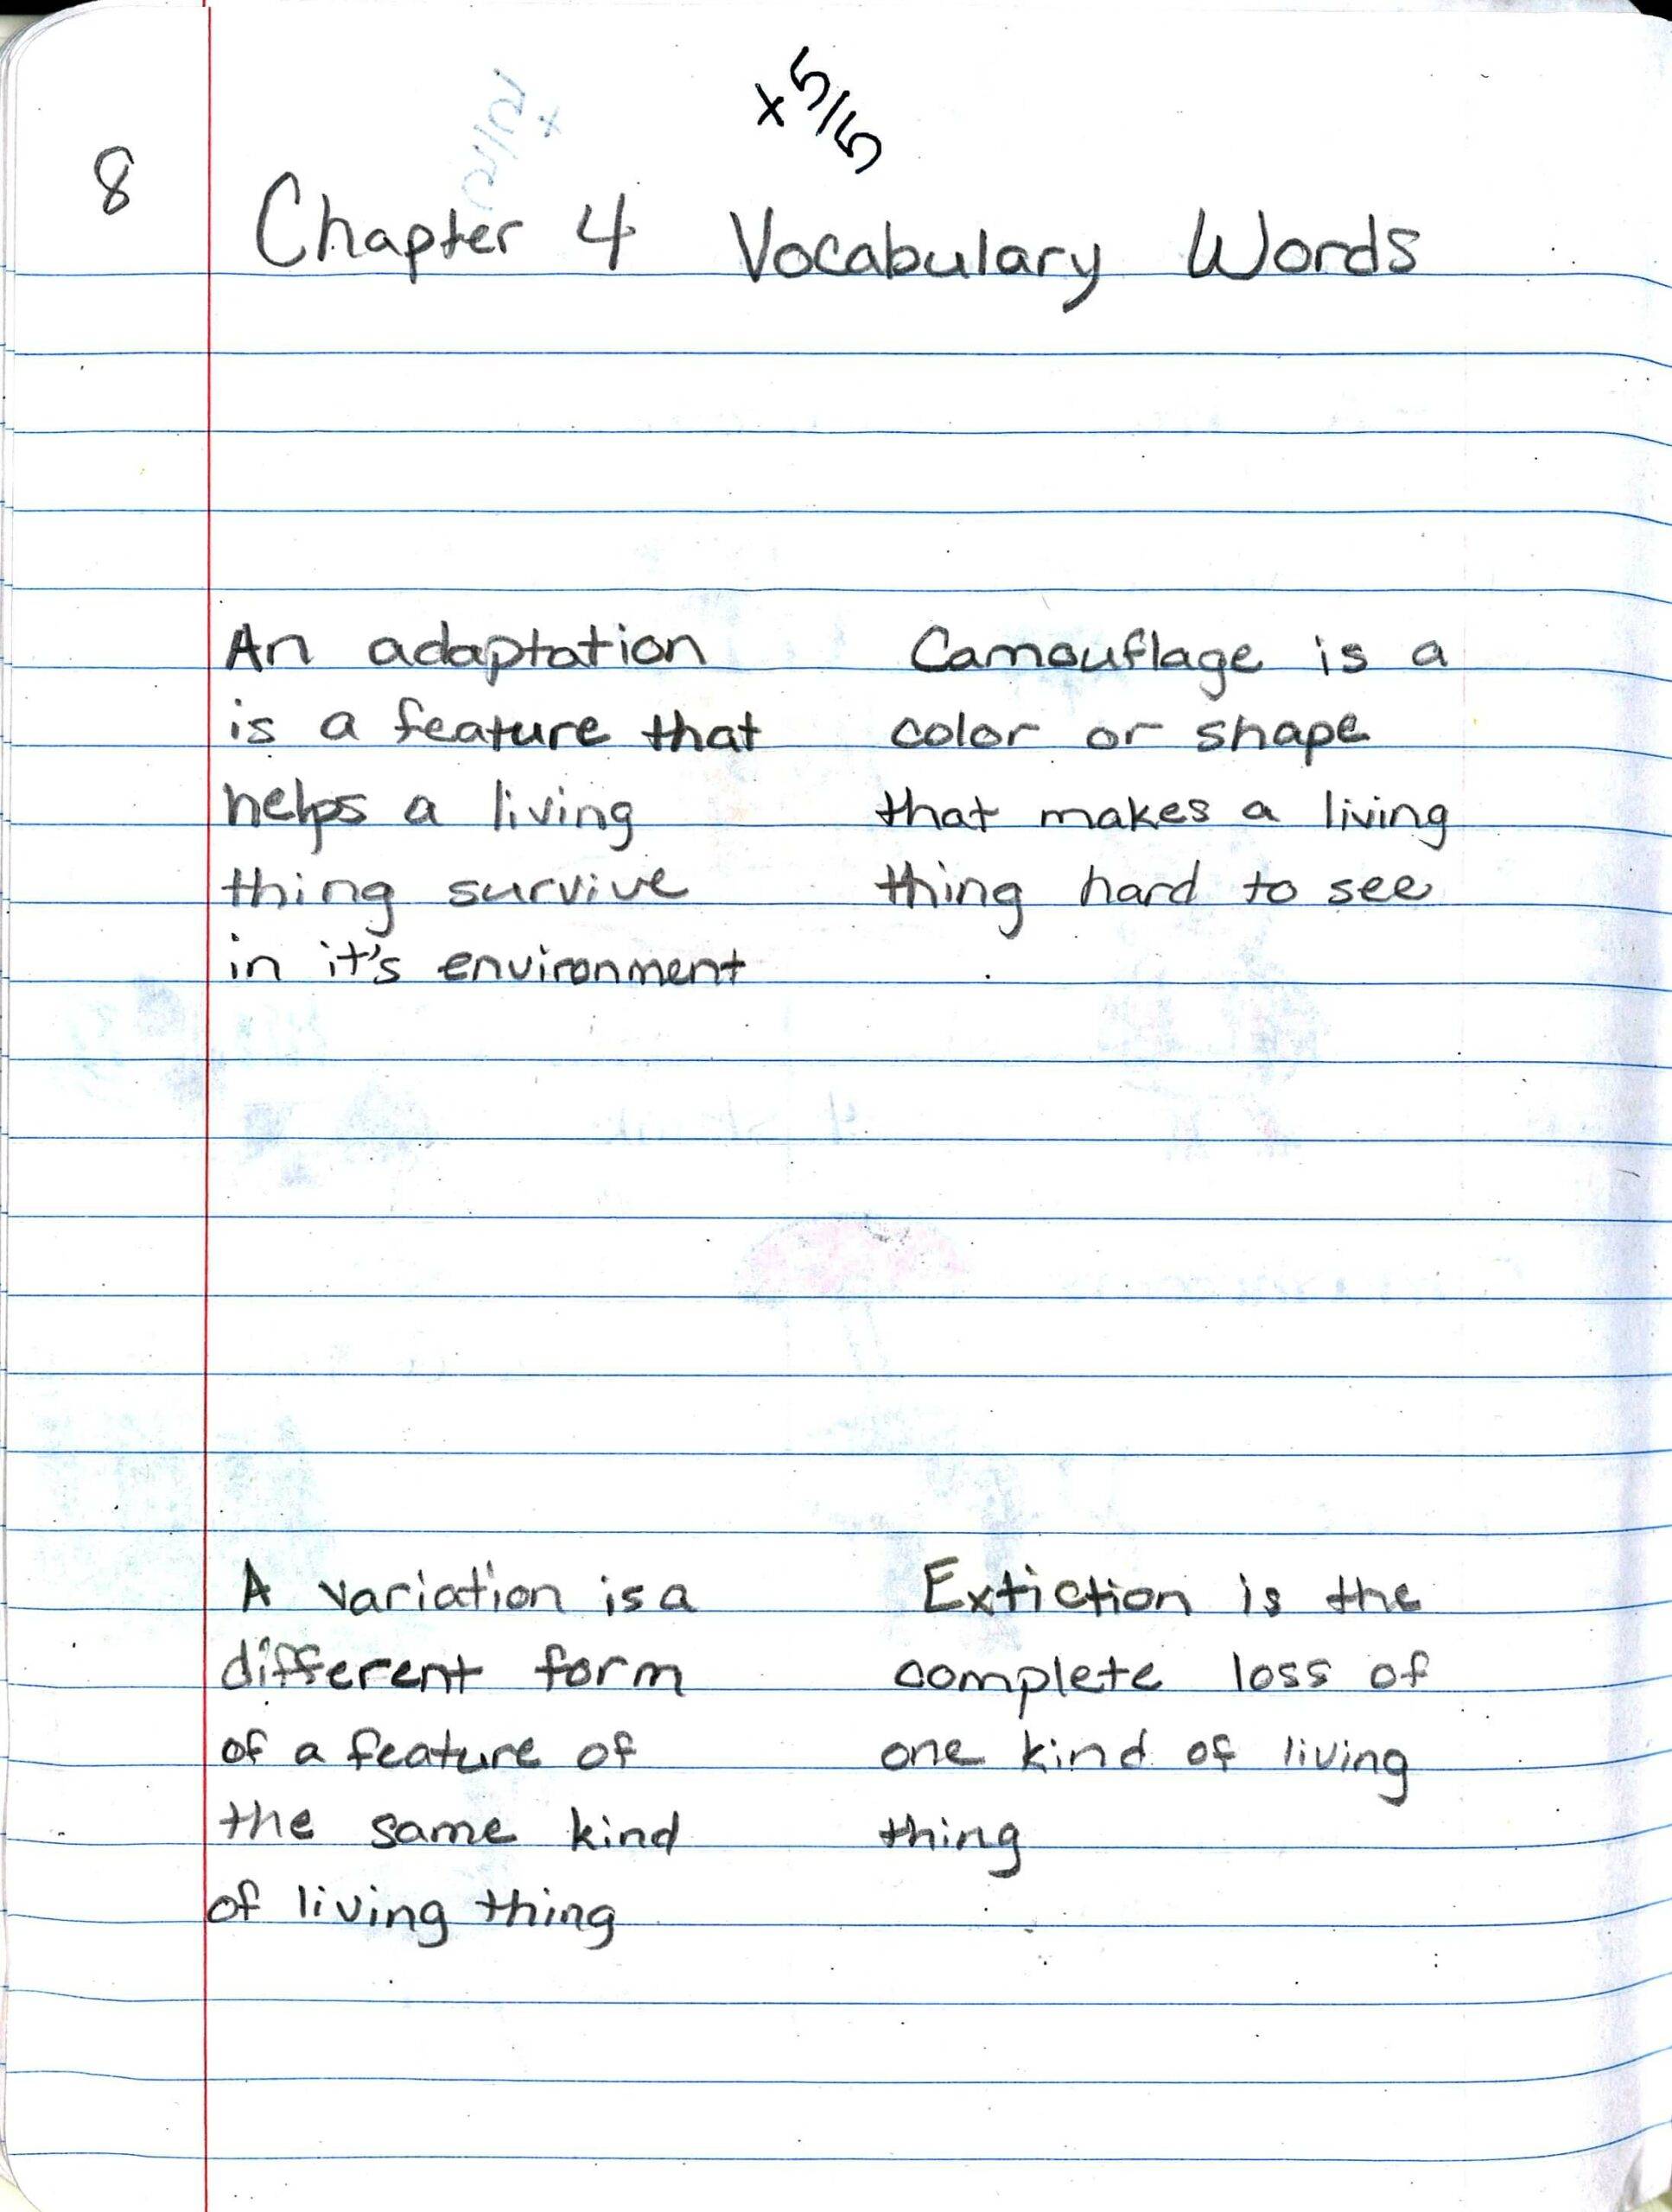 +5/5
8
Chapter 4 Vocabulary Words
An adaptation
is a feature that
helps a living
thing survive
in it's environment
Camouflage is a
color or shape
that makes a living
thing hard to see
A variation is a
different form
of a feature of
the same kind
of living thing
Extiction is the
complete loss of
one kind of living
thing